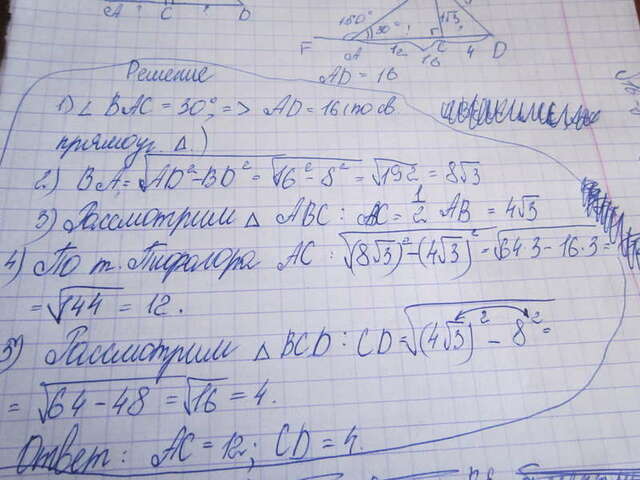 A C D
150°
30°
4√3
F A 12 C 4 D
16
Решение
AD = 16
1) ∠ BAC = 30°, => AD = 16 (по св.
прямоуг. Δ.)
2.) BA = √AD² - BD² = √16² - 8² = √192 = 8√3
3) Рассмотрим Δ ABC : BC = 1/2 AB = 4√3
4) По т. Пифагора AC : √(8√3)² - (4√3)² = √64·3 - 16·3 =
= √144 = 12.
5) Рассмотрим Δ BCD : CD = √(4√3)² - 8² =
= √64 - 48 = √16 = 4.
Ответ : AC = 12; CD = 4.